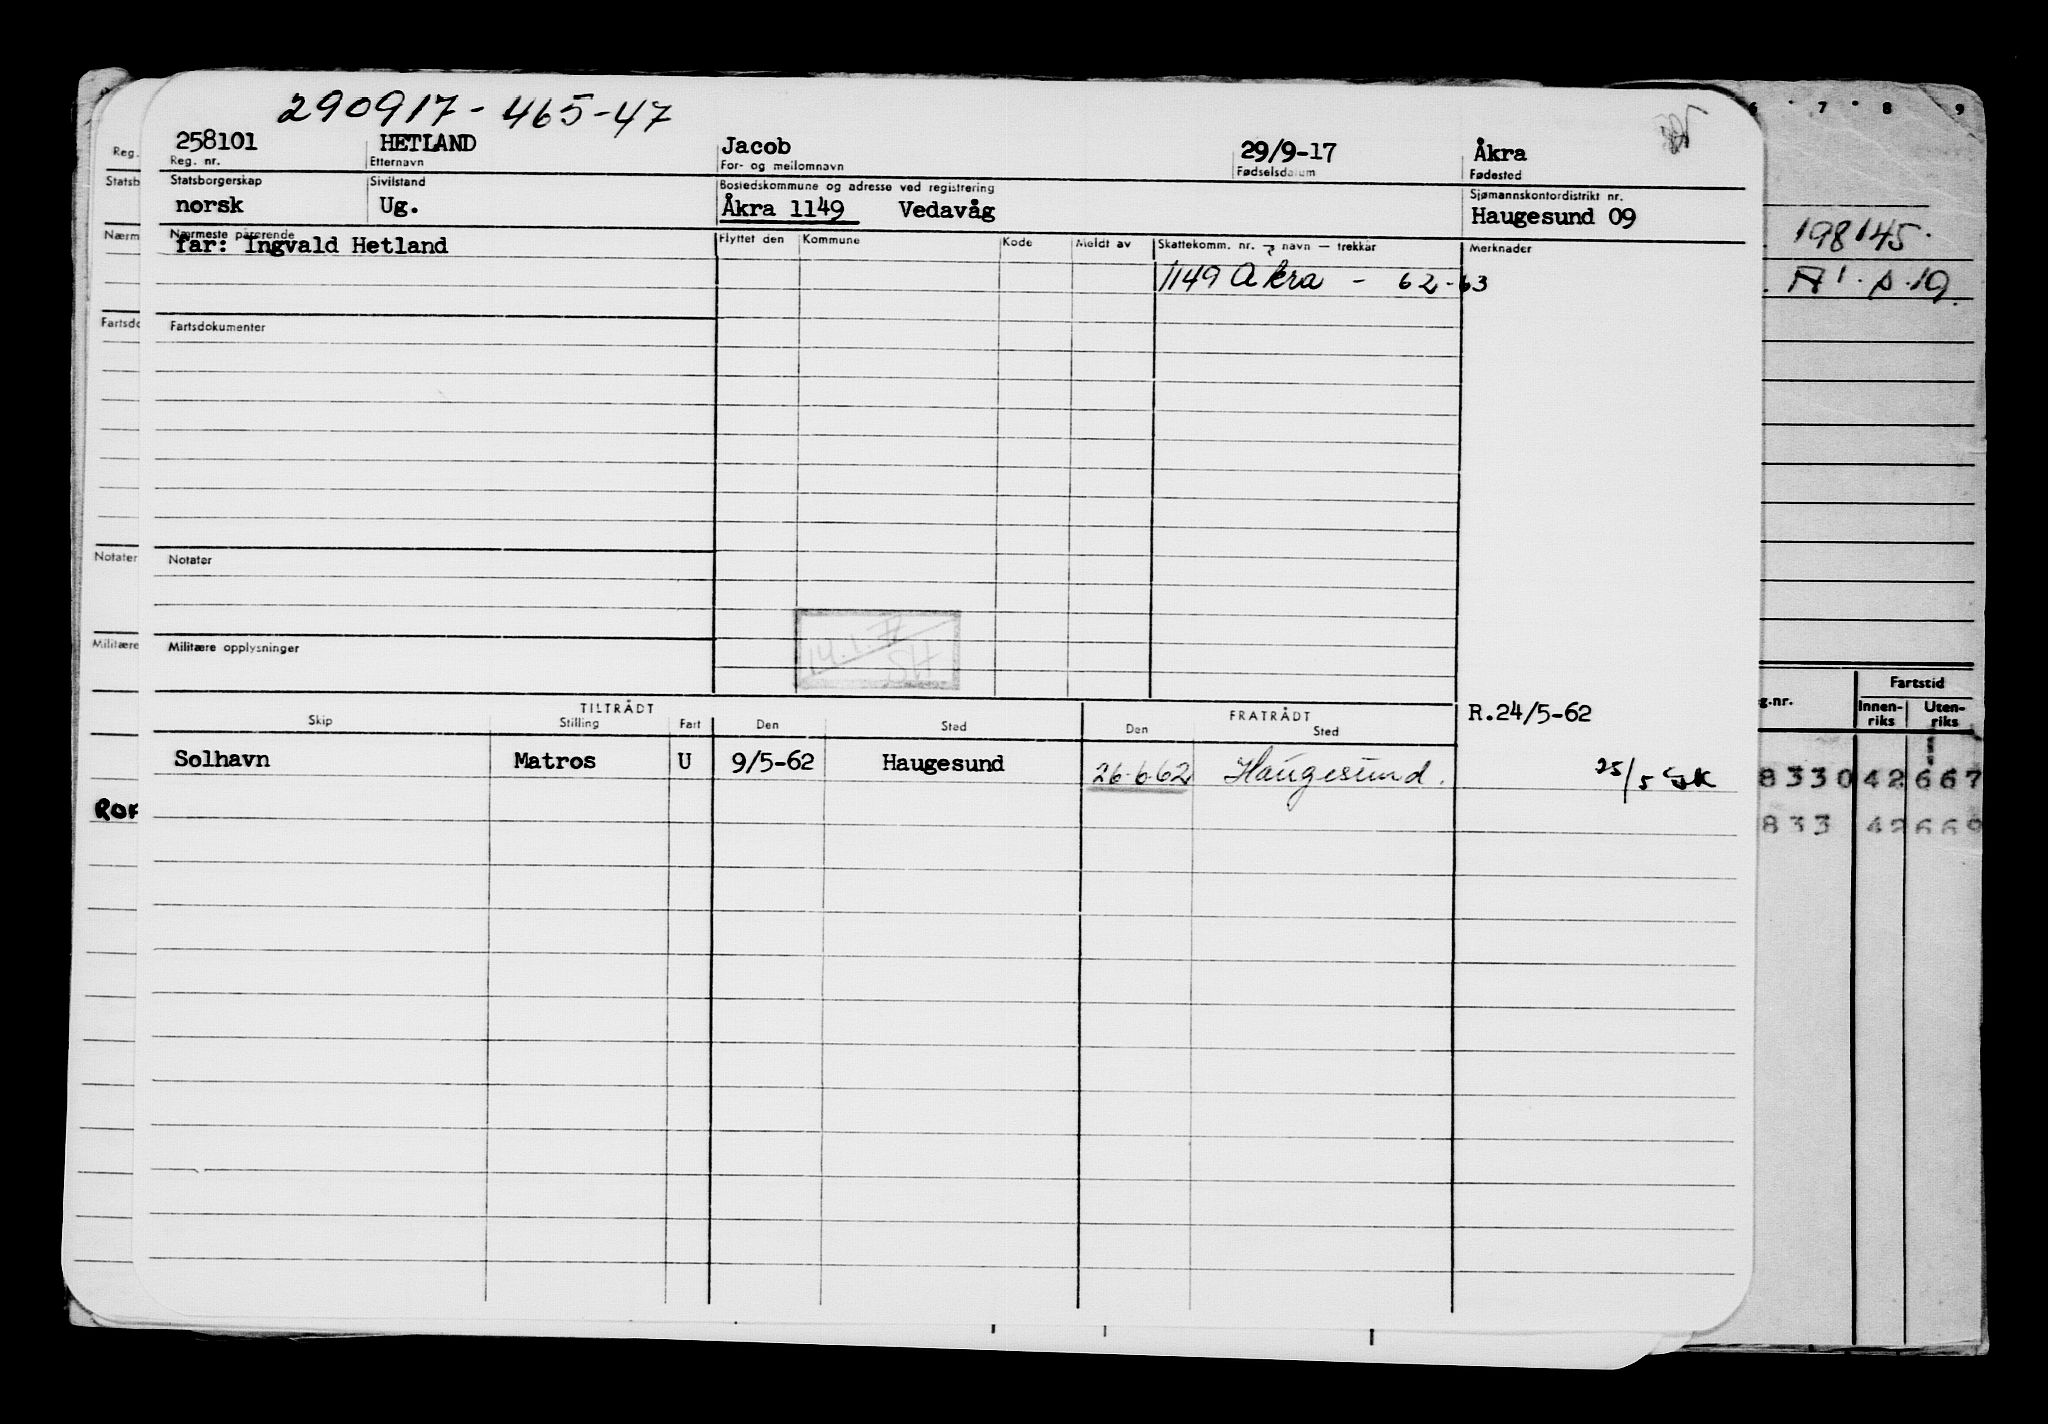 290917-465-47
258101 HETLAND Jacob 29/9-17 Åkra
Reg. nr. Etternavn For- og mellomnavn Fødselsdatum Fødested
Statsborgerskap Sivilstand Bostedskommune og adresse ved registrering Sjømannskontordistrikt nr.
norsk Ug. Åkra 1149 Vedavåg Haugesund 09
Nærmeste pårørende Flyttet den Kommune Kode Meldt av Skattekomm. nr. navn — trekkår Merknader
far: Ingvald Hetland
1149 Åkra - 62-63
Fartsdokumenter
Notater
Militære opplysninger
TILTRÅDT FRATRÅDT R.24/5-62
Skip Stilling Fart Den Sted Den Sted
Solhavn Matros U 9/5-62 Haugesund 26.6.62 Haugesund.
25/5
Reg.
Statsb
Nærm
Fartsdo
Notater
Militære
7 8 9
198145.
Fartstid
g.nr. Innen-riks Uten-riks
8330 42 667
833 42 669